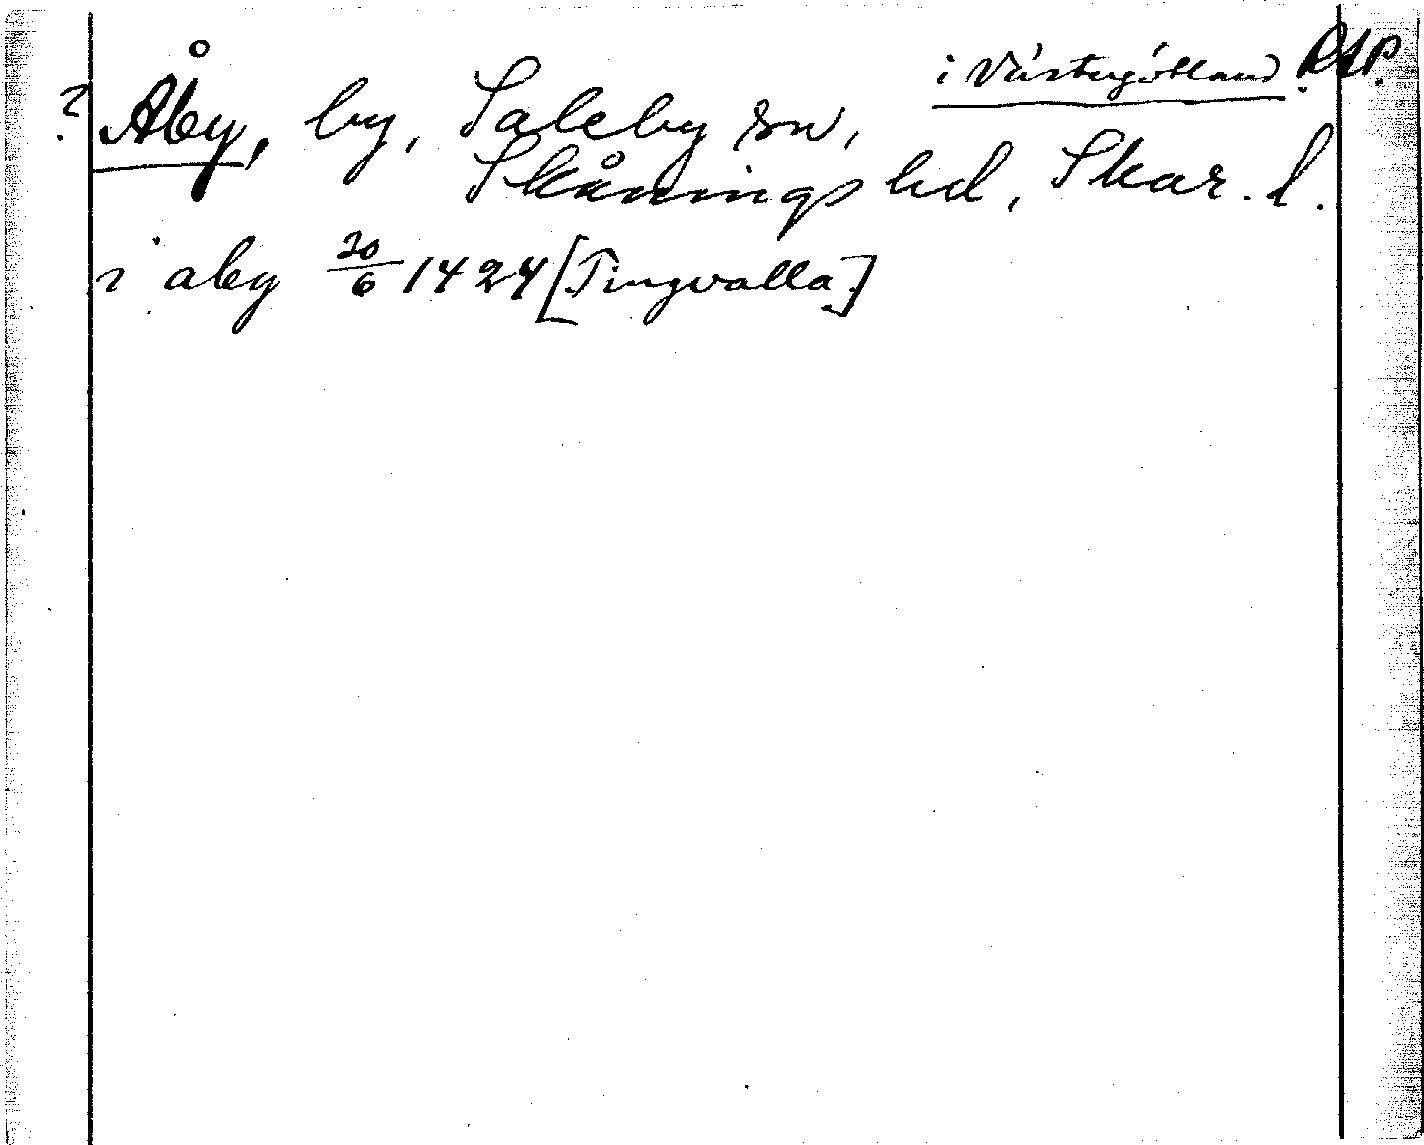 i Västergötland RAP.
? Åby, by, Saleby sn,
Skånings hd, Skar. l.
i aby 20/6 1424 [Tingvalla]